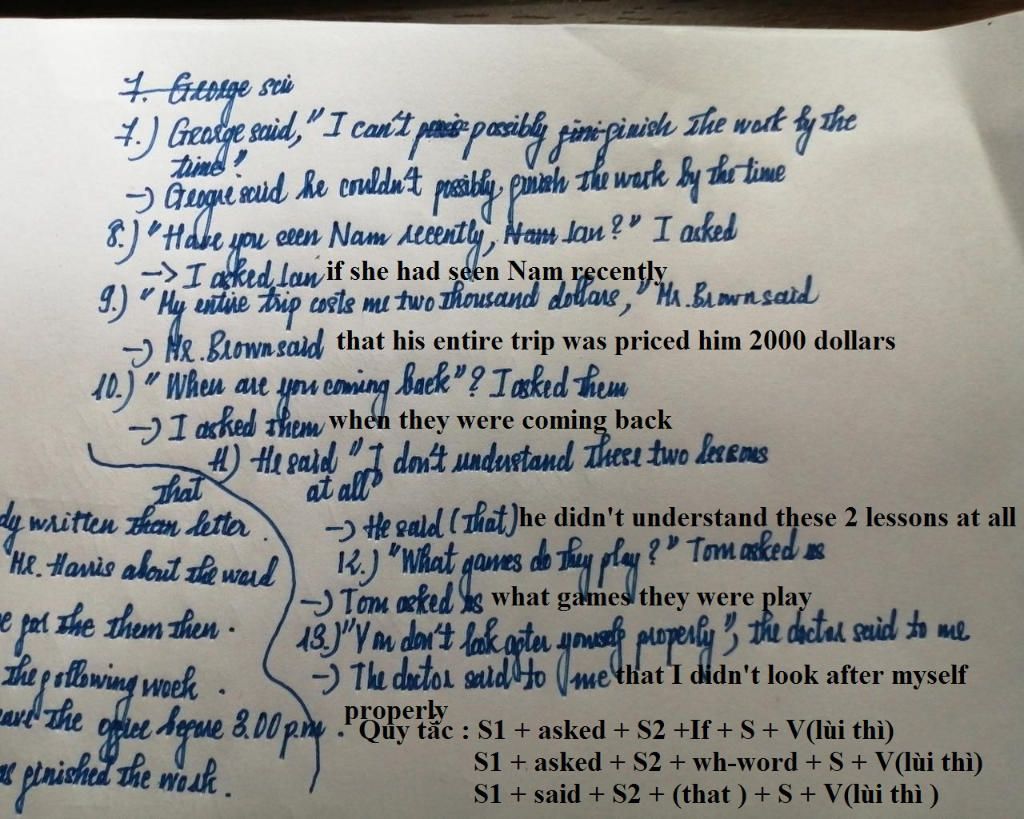 7. George sai
7.) George said, "I can't possibly finish the work by the
time".
-> Geogre said he couldn't possibly finish the work by the time
8.) "Have you seen Nam recently, Nam Lan?" I asked
-> I asked Lan if she had seen Nam recently
9.) "My entire trip costs me two thousand dollars," Mr. Brown said
-> Mr. Brown said that his entire trip was priced him 2000 dollars
10.) "When are you coming back"? I asked them
-> I asked them when they were coming back
11) He said "I don't understand these two lessons
at all"
-> He said (that) he didn't understand these 2 lessons at all
12.) "What games do they play?" Tom asked us
-> Tom asked us what games they were play
13.) "You don't look after yourself properly", the doctor said to me
-> The doctor said to me that I didn't look after myself
properly
Qùy tắc : S1 + asked + S2 +If + S + V(lùi thì)
S1 + asked + S2 + wh-word + S + V(lùi thì)
S1 + said + S2 + (that ) + S + V(lùi thì )
that
dy written than letter.
Mr. Harris about the word
the them then.
the following week.
the office before 3.00 p.m.
finished the work.